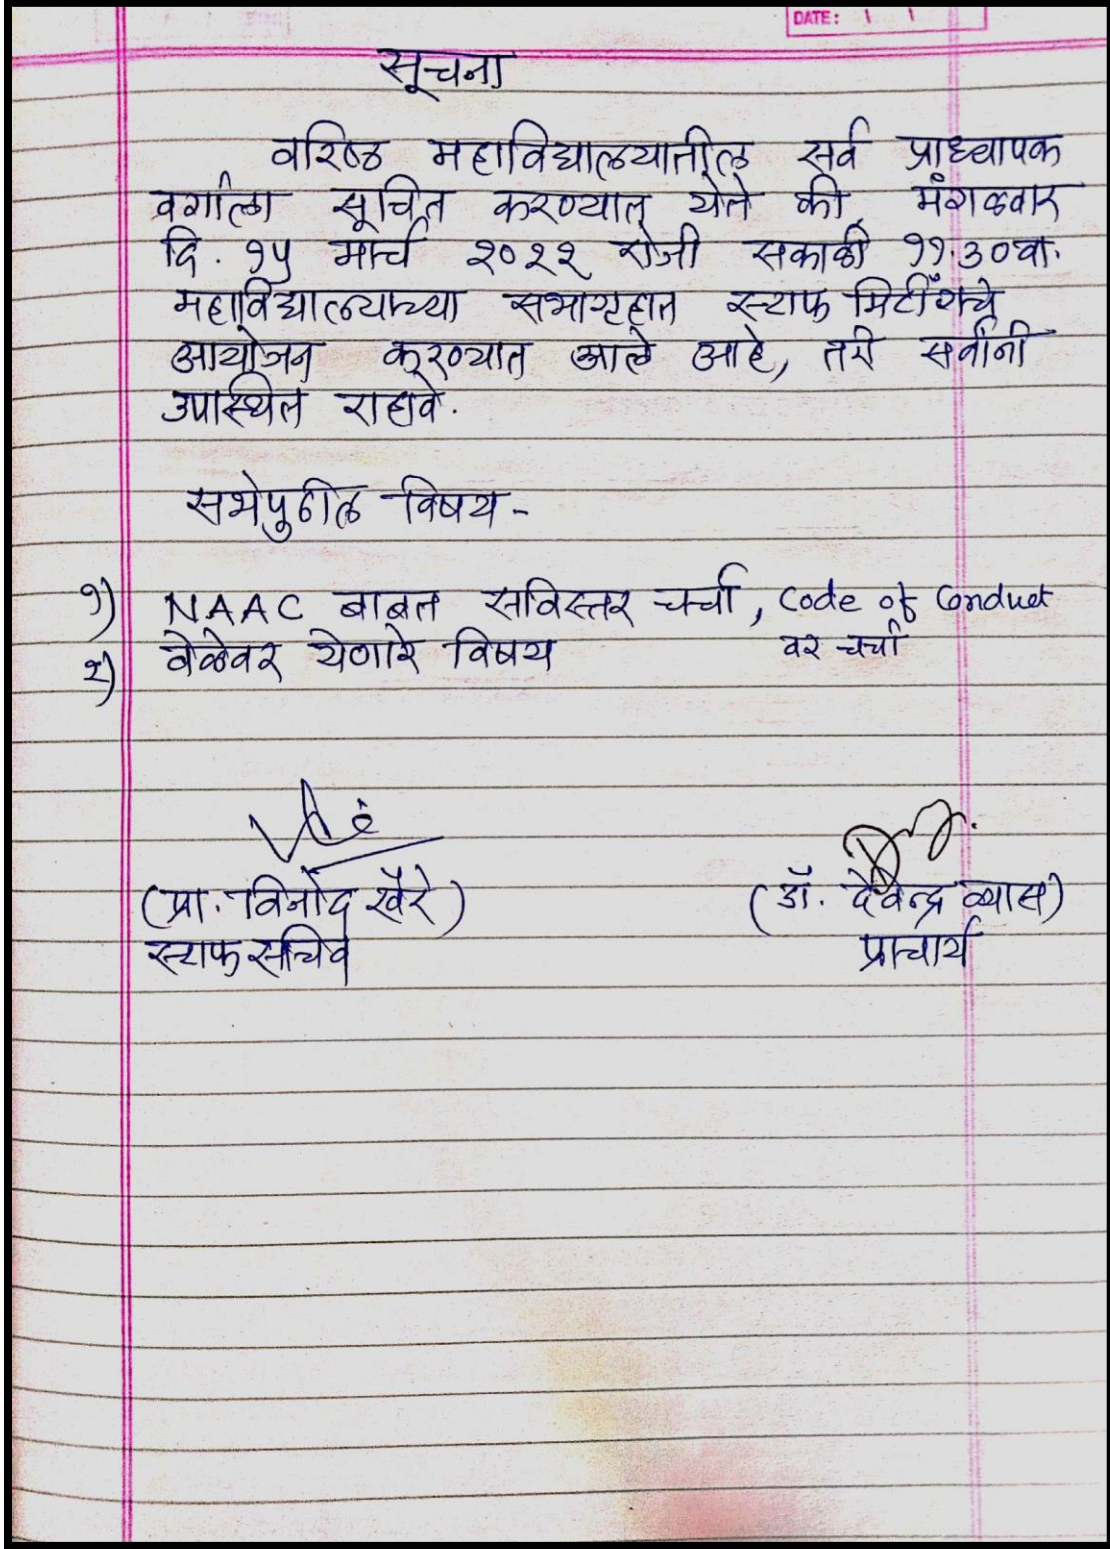 DATE: / /
सूचना
वरिष्ठ महाविद्यालयातील सर्व प्राध्यापक
वर्गाला सूचित करण्यात येते की, मंगळवार
दि. १५ मार्च २०२२ रोजी सकाळी ११.३० वा.
महाविद्यालयाच्या सभागृहात स्टाफ मिटींगचे
आयोजन करण्यात आले आहे, तरी सर्वांनी
उपस्थित राहावे.
सभेपुढील विषय -
१) NAAC बाबत सविस्तर चर्चा, Code of Conduct
वर चर्चा
२) वेळेवर येणारे विषय
(प्रा. विनोद खैरे)
(डॉ. देवेन्द्र व्यास)
स्टाफ सचिव
प्राचार्य